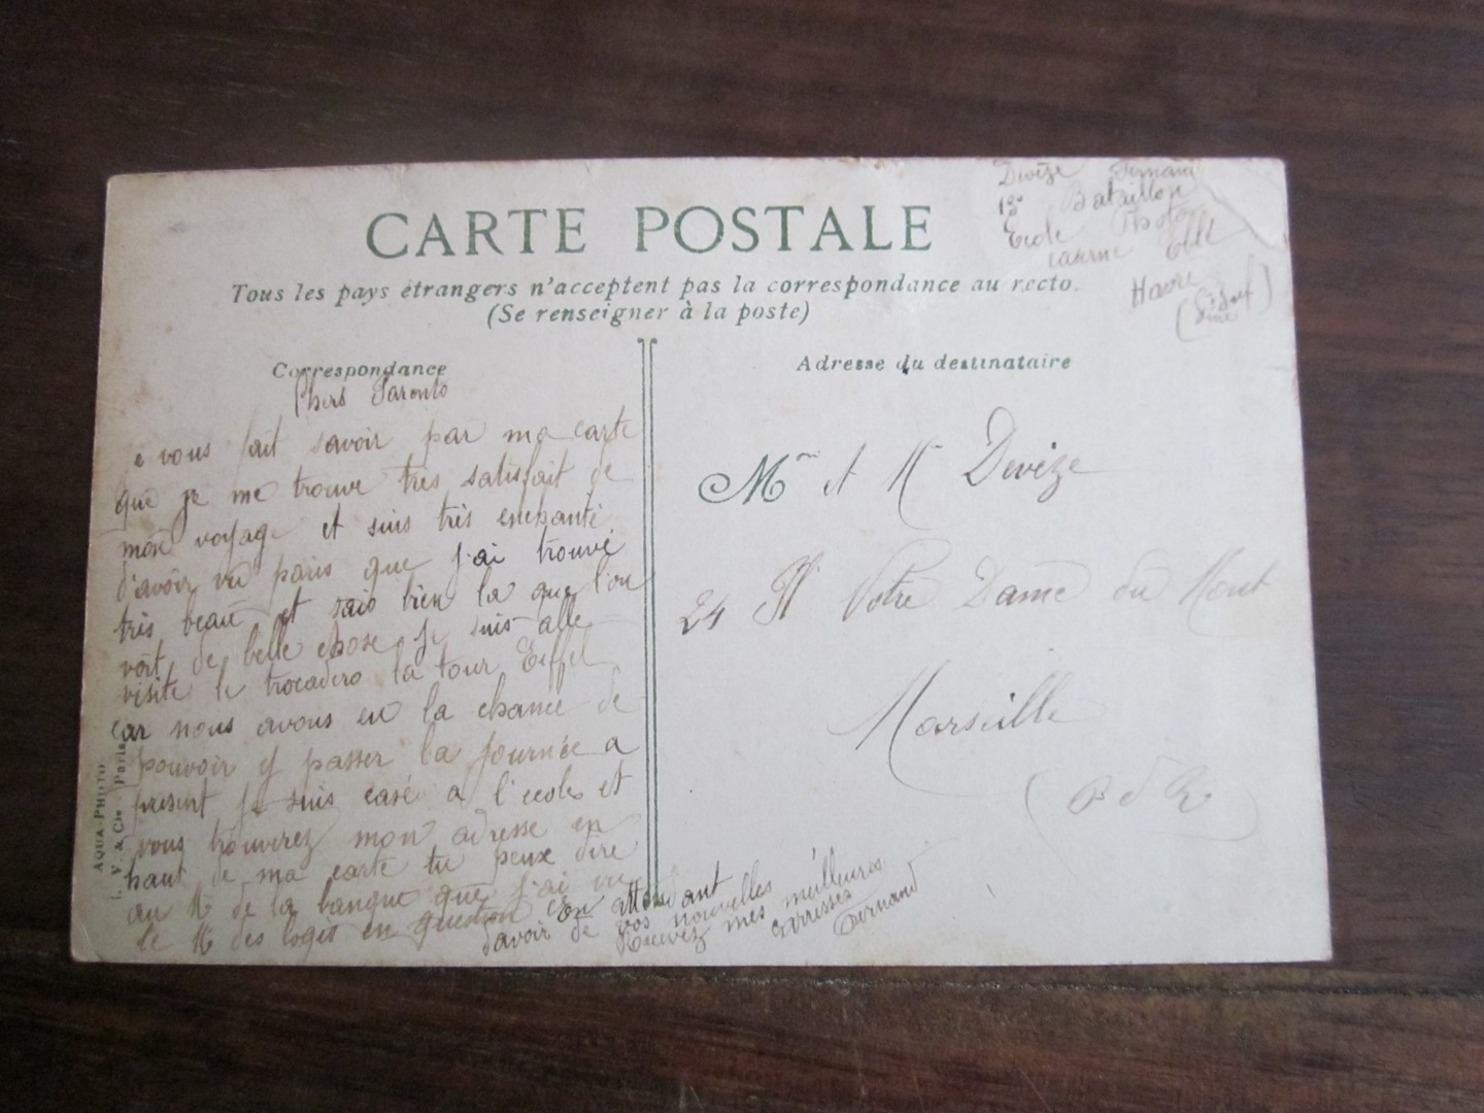 CARTE POSTALE
Tous les pays étrangers n'acceptent pas la correspondance au recto.
(Se renseigner à la poste)
Devize Fernand
Bataillon
Ecole
caserne Eblé
Havre
Correspondance
Chers Parents
e vous fait savoir par ma carte
que je me trouve tres satisfait de
mon voyage et suis très enchanté
d'avoir vu paris que j'ai trouvé
très beau et sais bien la que l'on
voit de belle chose je suis allé
visité le trocadero la tour Eiffel
car nous avons eu la chance de
pouvoir y passer la journée a
présent je suis casé a l'ecole et
vous trouverez mon adresse en
haut de ma carte tu peux dire
au M de la banque que j'ai vu
le M des logis en question
En attendant
d'avoir de vos nouvelles
Recevez mes meilleures
carresses
Fernand
Adresse du destinataire
Mme et M Devize
24 Notre Dame du Mont
Marseille
(B d R)
AQUA-PHOTO
L. V. & Cie Paris